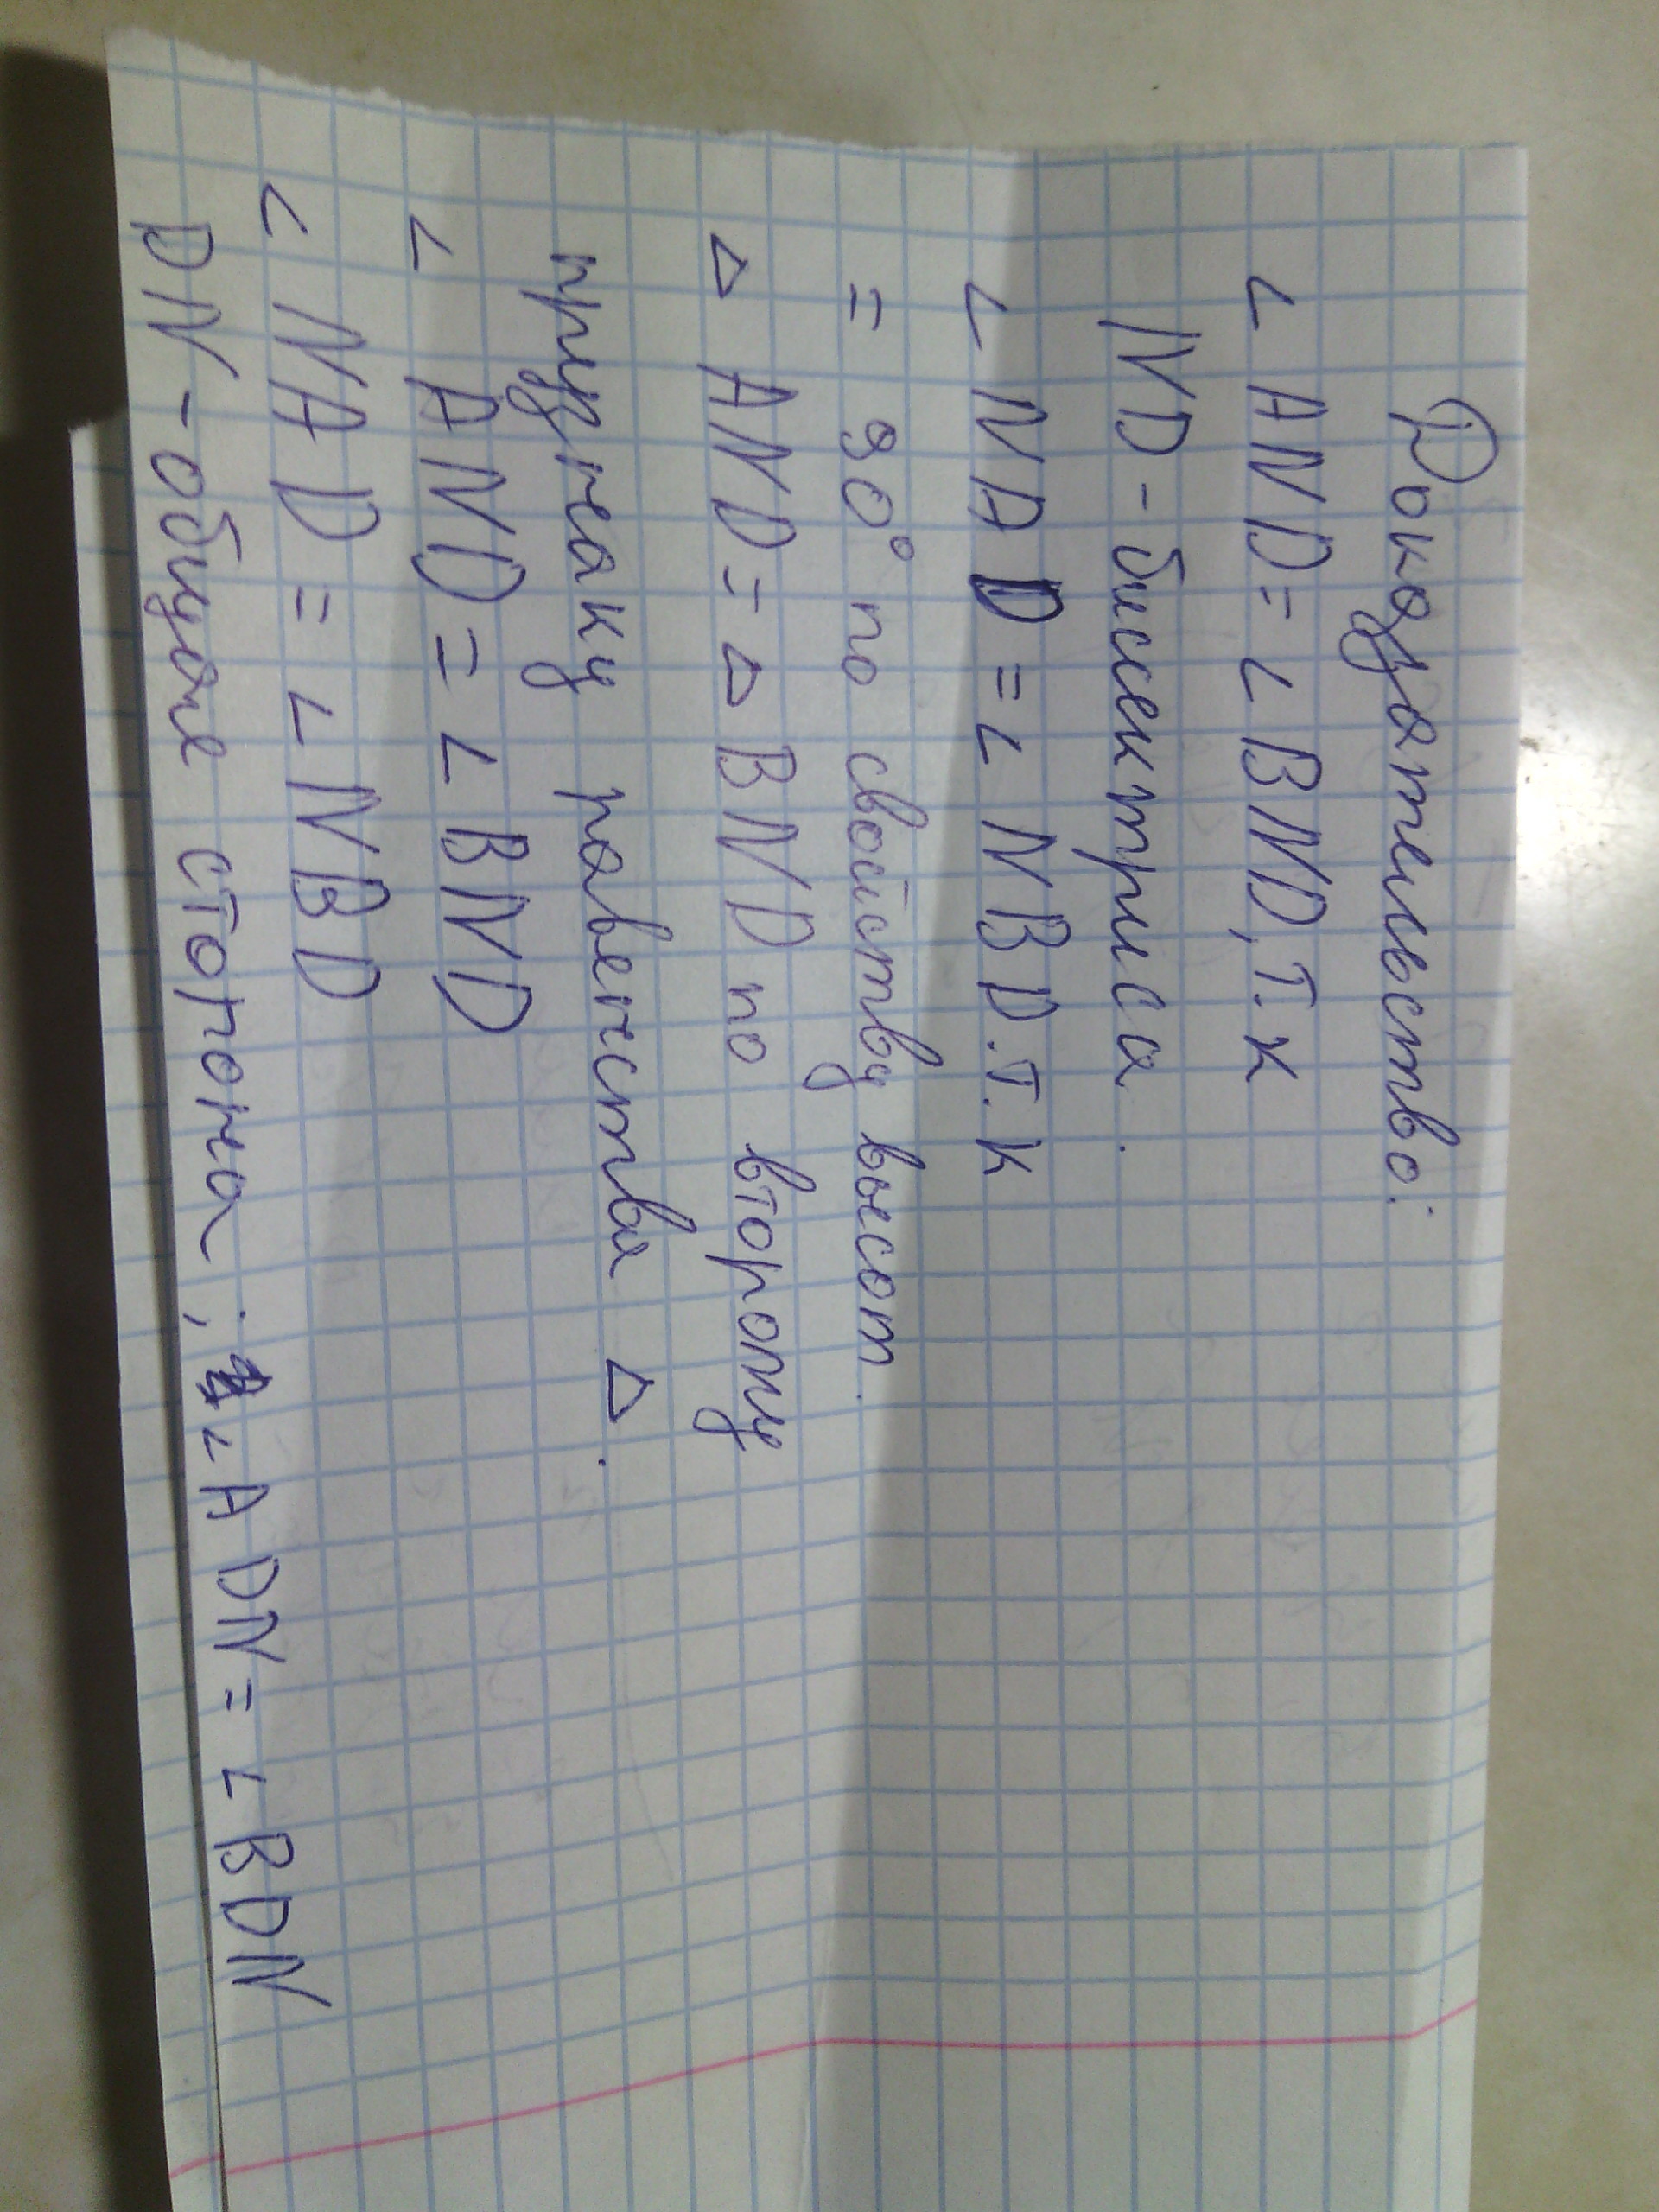 Доказательство:
∠ AND = ∠ BND, т.к
ND - биссектриса.
∠ NAD = ∠ NBD. т.к
= 90° по свойству высот.
△ AND = △ BND по второму
признаку равенства △.
∠ AND = ∠ BND
∠ NAD = ∠ NBD
DN - общая сторона; ∠ ADN = ∠ BDN